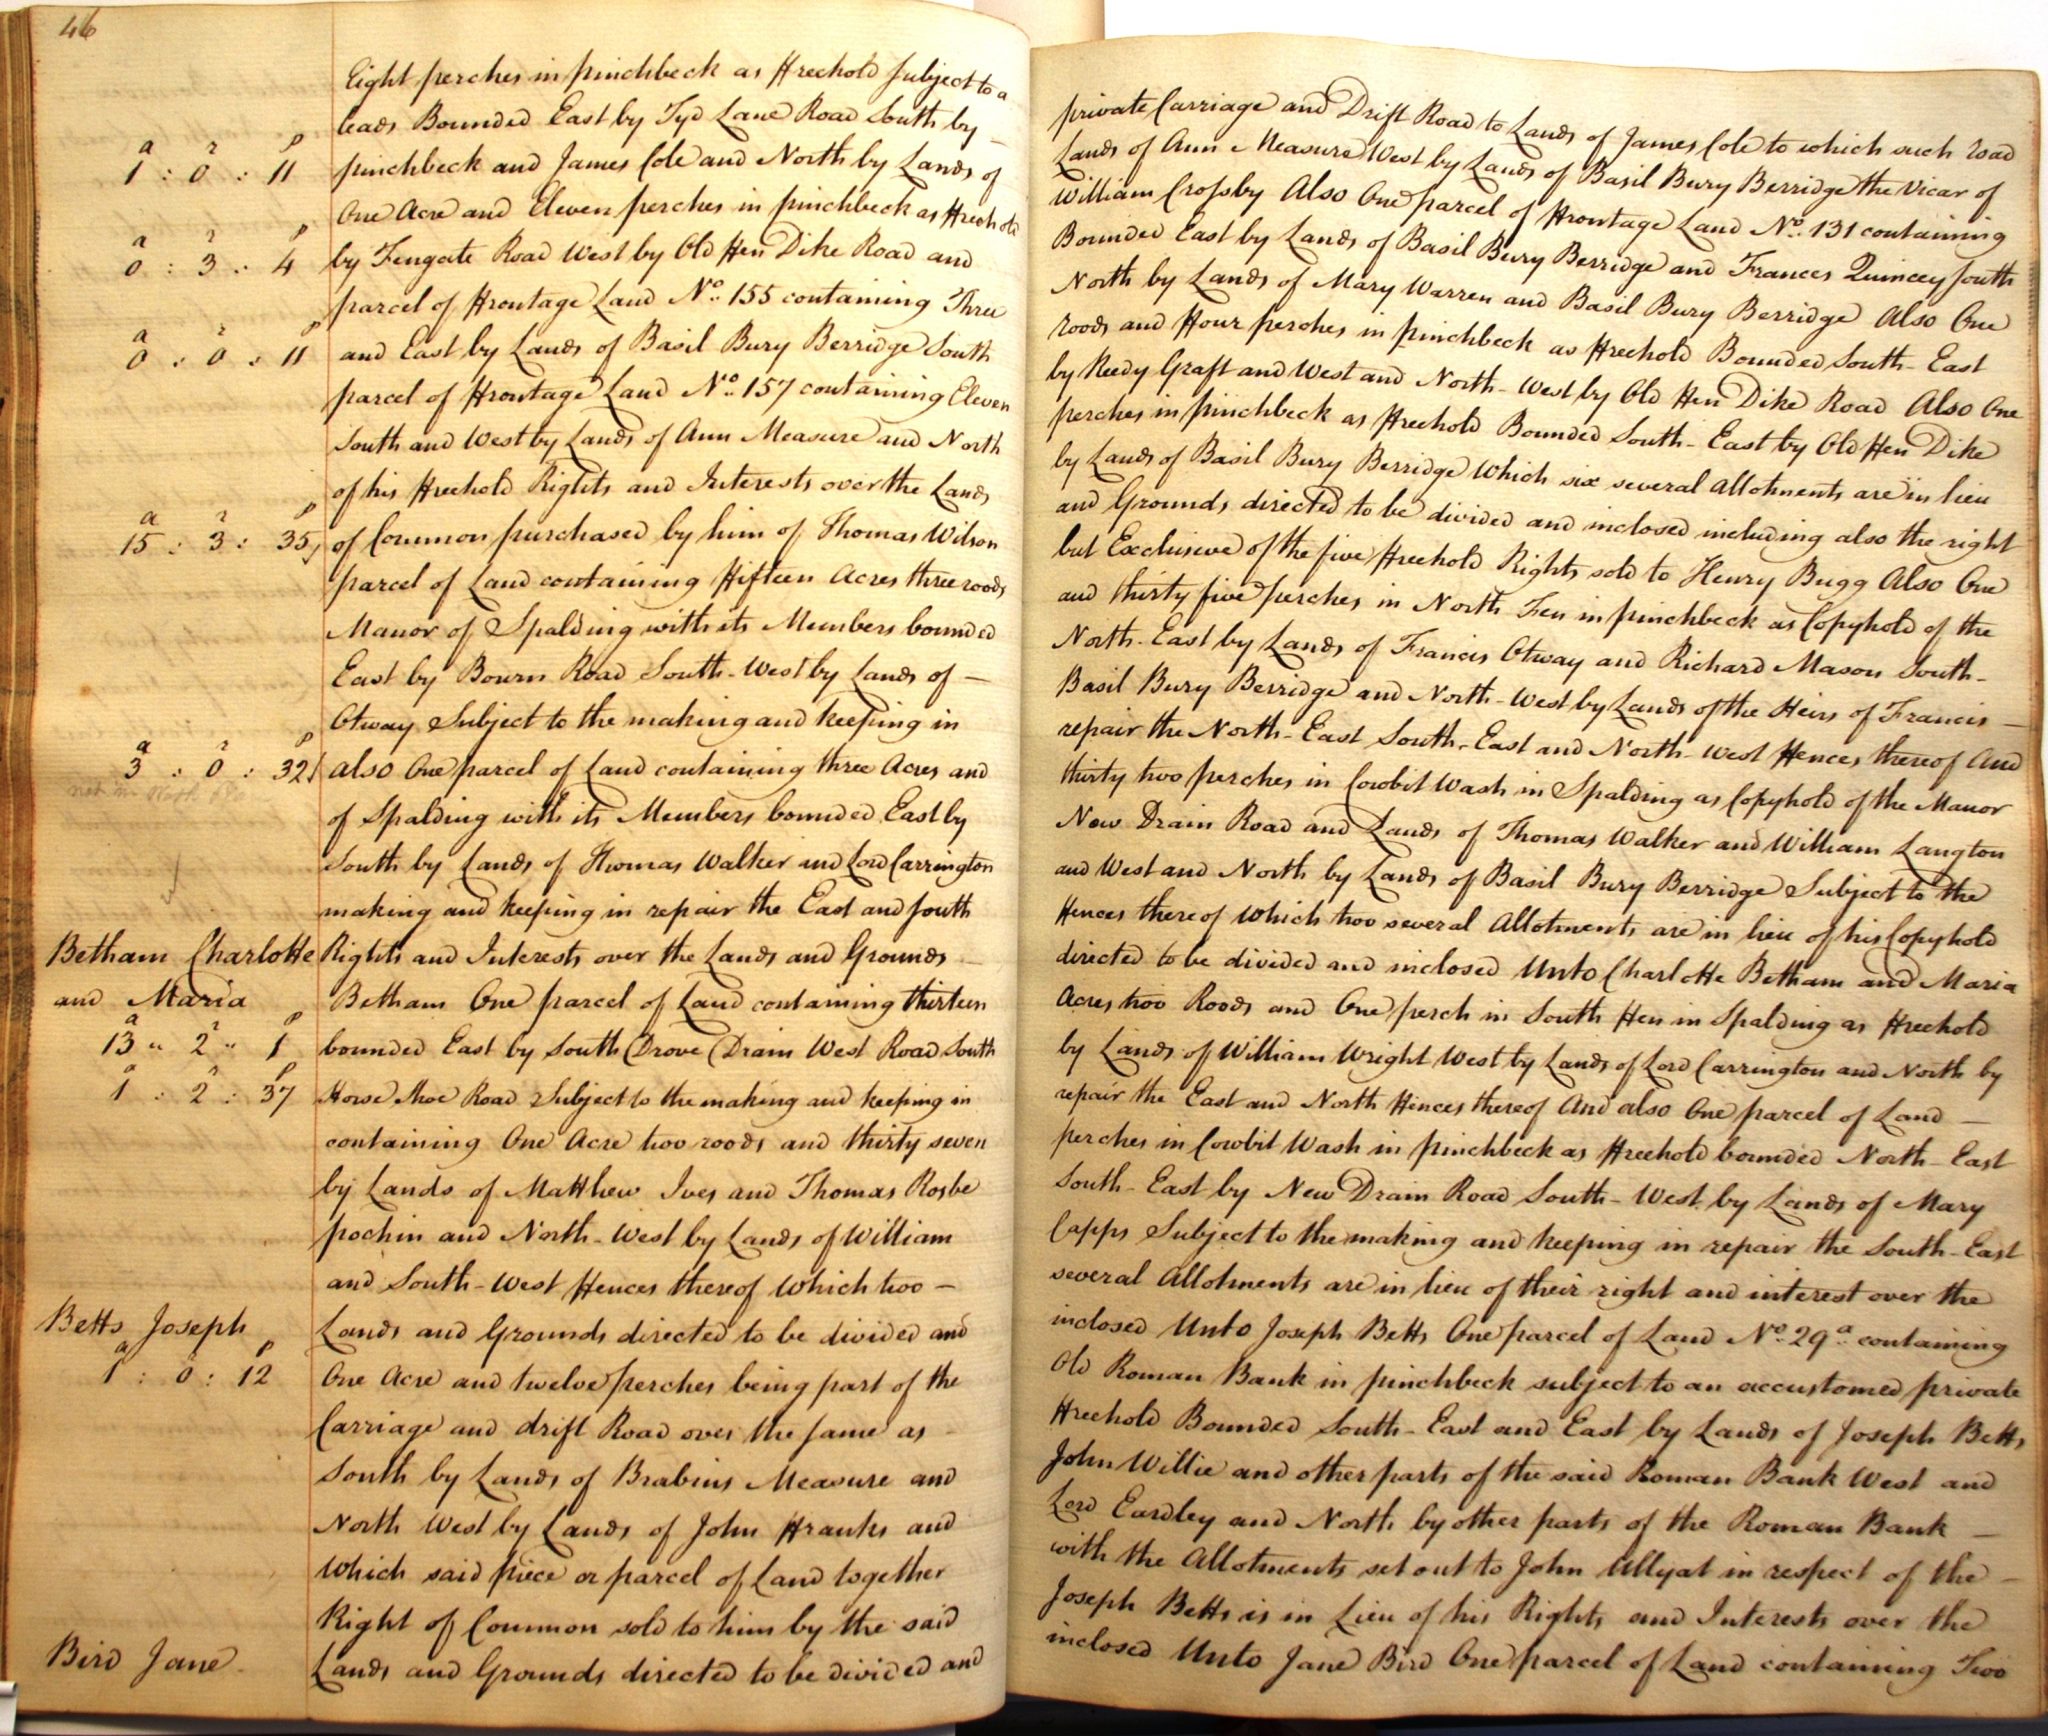 46
Eight perches in pinchbeck as Freehold Subject to a private Carriage and Drift Road to Lands of James Cole to which such road
leads Bounded East by Tyd Lane Road South by – Lands of Ann Measure West by Lands of Basil Bury Berridge the Vicar of
a r p
1 : 0 : 11 pinchbeck and James Cole and North by Lands of William Crosby Also One parcel of Frontage Land No. 131 containing
One Acre and Eleven perches in pinchbeck as Freehold Bounded East by Lands of Basil Bury Berridge and Frances Quincey South
a r p
0 : 3 : 4 by Fengate Road West by Old Hen Dike Road and North by Lands of Mary Warren and Basil Bury Berridge Also One
parcel of Frontage Land No. 155 containing Three roods and Four perches in pinchbeck as Freehold Bounded South-East
a r p
0 : 0 : 11 and East by Lands of Basil Bury Berridge South by Reedy Graft and West and North-West by Old Hen Dike Road Also One
parcel of Frontage Land No. 157 containing Eleven perches in pinchbeck as Freehold Bounded South-East by Old Hen Dike
South and West by Lands of Ann Measure and North by Lands of Basil Bury Berridge Which six several Allotments are in lieu
of his Freehold Rights and Interests over the Lands and Grounds directed to be divided and inclosed including also the right
a r p
15 : 3 : 35 of Common purchased by him of Thomas Wilson but Exclusive of the five Freehold Rights sold to Henry Bugg Also One
parcel of Land containing Fifteen Acres three roods and thirty five perches in North Fen in pinchbeck as Copyhold of the
Manor of Spalding with its Members bounded North-East by Lands of Francis Otway and Richard Mason South-
East by Bourn Road South-West by Lands of – Basil Bury Berridge and North-West by Lands of the Heirs of Francis –
Otway Subject to the making and keeping in repair the North-East South-East and North-West Fences thereof And
a r p
3 : 0 : 32 also One parcel of Land containing three Acres and thirty two perches in Cowbit Wash in Spalding as Copyhold of the Manor
of Spalding with its Members bounded East by New Drain Road and Lands of Thomas Walker and William Langton
South by Lands of Thomas Walker and Lord Carrington and West and North by Lands of Basil Bury Berridge Subject to the
making and keeping in repair the East and South Fences thereof Which two several Allotments are in lieu of his Copyhold
Betham Charlotte Rights and Interests over the Lands and Grounds – directed to be divided and inclosed Unto Charlotte Betham and Maria
and Maria Betham One parcel of Land containing thirteen Acres two Roods and One perch in South Fen in Spalding as Freehold
a r p
13 " 2 " 1 bounded East by South Drove Drain West Road South by Lands of William Wright West by Lands of Lord Carrington and North by
a r p
1 : 2 : 37 Horse Shoe Road Subject to the making and keeping in repair the East and North Fences thereof And also One parcel of Land –
containing One Acre two roods and thirty seven perches in Cowbit Wash in pinchbeck as Freehold bounded North-East
by Lands of Matthew Ives and Thomas Rosbe South-East by New Drain Road South-West by Lands of Mary
pochin and North-West by Lands of William Capps Subject to the making and keeping in repair the South-East
and South-West Fences thereof Which two – several Allotments are in lieu of their right and interest over the
Betts Joseph Lands and Grounds directed to be divided and inclosed Unto Joseph Betts One parcel of Land No. 29a. containing
a r p
1 : 0 : 12 One Acre and twelve perches being part of the Old Roman Bank in pinchbeck subject to an accustomed private
Carriage and drift Road over the same as – Freehold Bounded South-East and East by Lands of Joseph Betts
South by Lands of Brabins Measure and John Willie and other parts of the said Roman Bank West and
North West by Lands of John Franks and Lord Eardley and North by other parts of the Roman Bank –
Which said piece or parcel of Land together with the Allotments set out to John Ullyat in respect of the –
Right of Common sold to him by the said Joseph Betts is in Lieu of his Rights and Interests over the
Bird Jane Lands and Grounds directed to be divided and inclosed Unto Jane Bird One parcel of Land containing Two